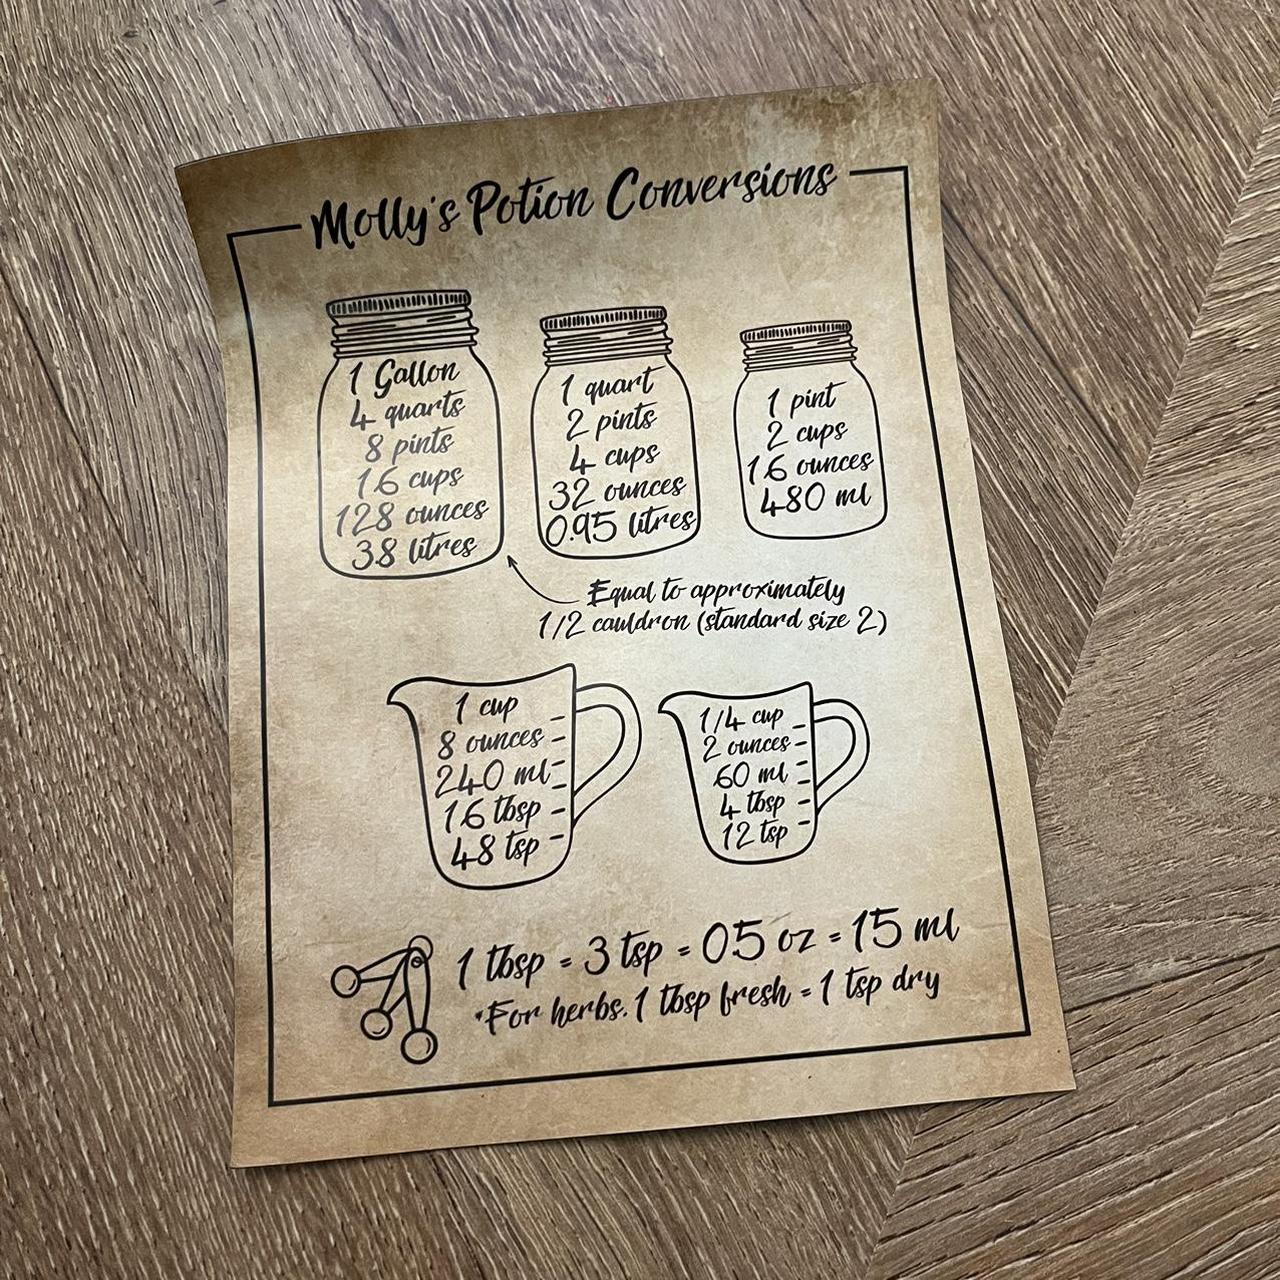 Molly's Potion Conversions
1 Gallon
4 quarts
8 pints
16 cups
128 ounces
3.8 litres
1 quart
2 pints
4 cups
32 ounces
0.95 litres
1 pint
2 cups
16 ounces
480 ml
Equal to approximately
1/2 cauldron (standard size 2)
1 cup
8 ounces
240 ml
16 tbsp
48 tsp
1/4 cup
2 ounces
60 ml
4 tbsp
12 tsp
1 tbsp = 3 tsp = 0.5 oz = 15 ml
*For herbs, 1 tbsp fresh = 1 tsp dry